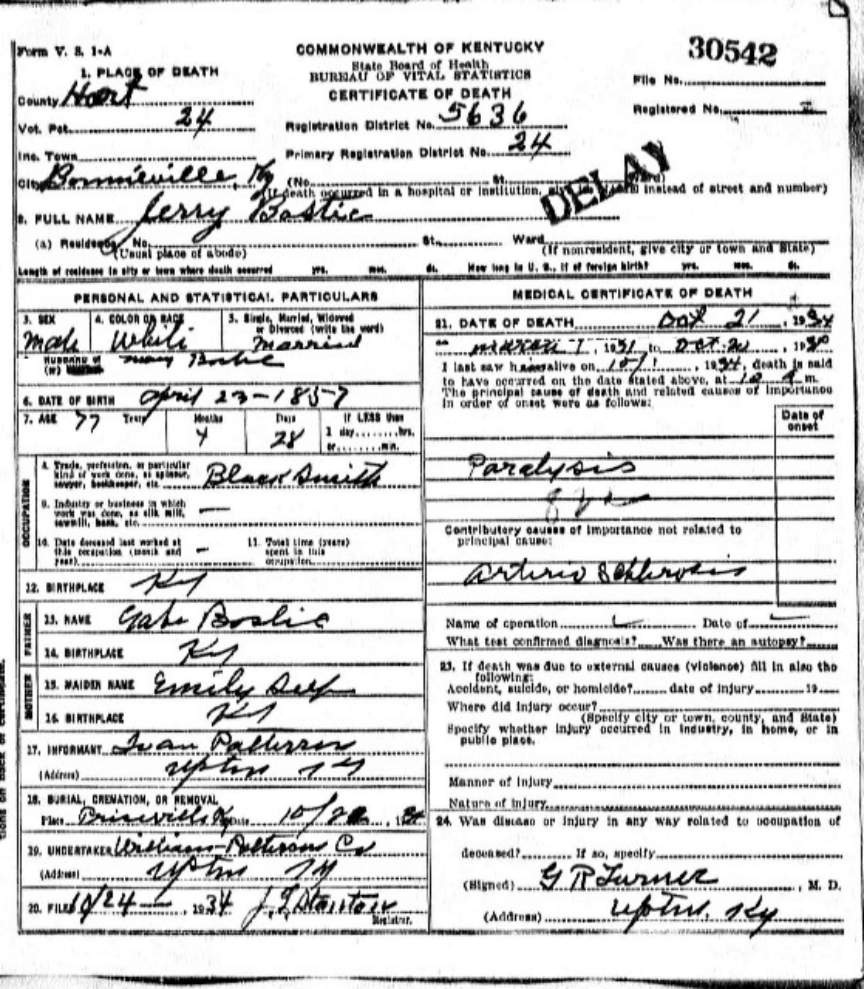 Form V. S. 1-A
COMMONWEALTH OF KENTUCKY
State Board of Health
BUREAU OF VITAL STATISTICS
CERTIFICATE OF DEATH
30542
File No.
Registered No.
1. PLACE OF DEATH
County Hart
Vot. Pct. 24
Registration District No. 5636
Inc. Town
Primary Registration District No. 24
City Bonnieville, Ky (No. St. Ward)
DELAY
(If death occurred in a hospital or institution, instead of street and number)
2. FULL NAME Jerry Bostic
(a) Residence, No. St. Ward
(Usual place of abode) (If nonresident, give city or town and State)
Length of residence in city or town where death occurred yrs. mos. ds. How long in U. S., if of foreign birth? yrs. mos. ds.
PERSONAL AND STATISTICAL PARTICULARS
3. SEX 4. COLOR OR RACE 5. Single, Married, Widowed or Divorced (write the word)
Male White Married
HUSBAND of
(or) Mary Bostic
6. DATE OF BIRTH April 23-1857
7. AGE 77 Years Months 4 Days 28 If LESS than 1 day, hrs. or min.
OCCUPATION
8. Trade, profession, or particular kind of work done, as spinner, sawyer, bookkeeper, etc. Black Smith
9. Industry or business in which work was done, as silk mill, sawmill, bank, etc. —
10. Date deceased last worked at this occupation (month and year) —
11. Total time (years) spent in this occupation
12. BIRTHPLACE Ky
FATHER
13. NAME Gabe Bostic
14. BIRTHPLACE Ky
MOTHER
15. MAIDEN NAME Emily
16. BIRTHPLACE Ky
17. INFORMANT Ivan Patterson
(Address) Upton Ky
18. BURIAL, CREMATION, OR REMOVAL
Place Date 10/22, 1934
19. UNDERTAKER Williams-Patterson Co
(Address) Upton Ky
20. FILED 10/24 —, 1934
Registrar.
MEDICAL CERTIFICATE OF DEATH
21. DATE OF DEATH Oct 21, 1934
I last saw him alive on, 1934, death is said
to have occurred on the date stated above, at m.
The principal cause of death and related causes of importance
in order of onset were as follows:
Date of onset
Paralysis
Contributory causes of importance not related to
principal cause:
Arterio Schlerosis
Name of operation Date of
What test confirmed diagnosis? Was there an autopsy?
23. If death was due to external causes (violence) fill in also the
following:
Accident, suicide, or homicide? date of injury 19
Where did injury occur?
(Specify city or town, county, and State)
Specify whether injury occurred in industry, in home, or in
public place.
Manner of injury
Nature of injury
24. Was disease or injury in any way related to occupation of
deceased? If so, specify
(Signed) G R Turner, M. D.
(Address) Upton, Ky